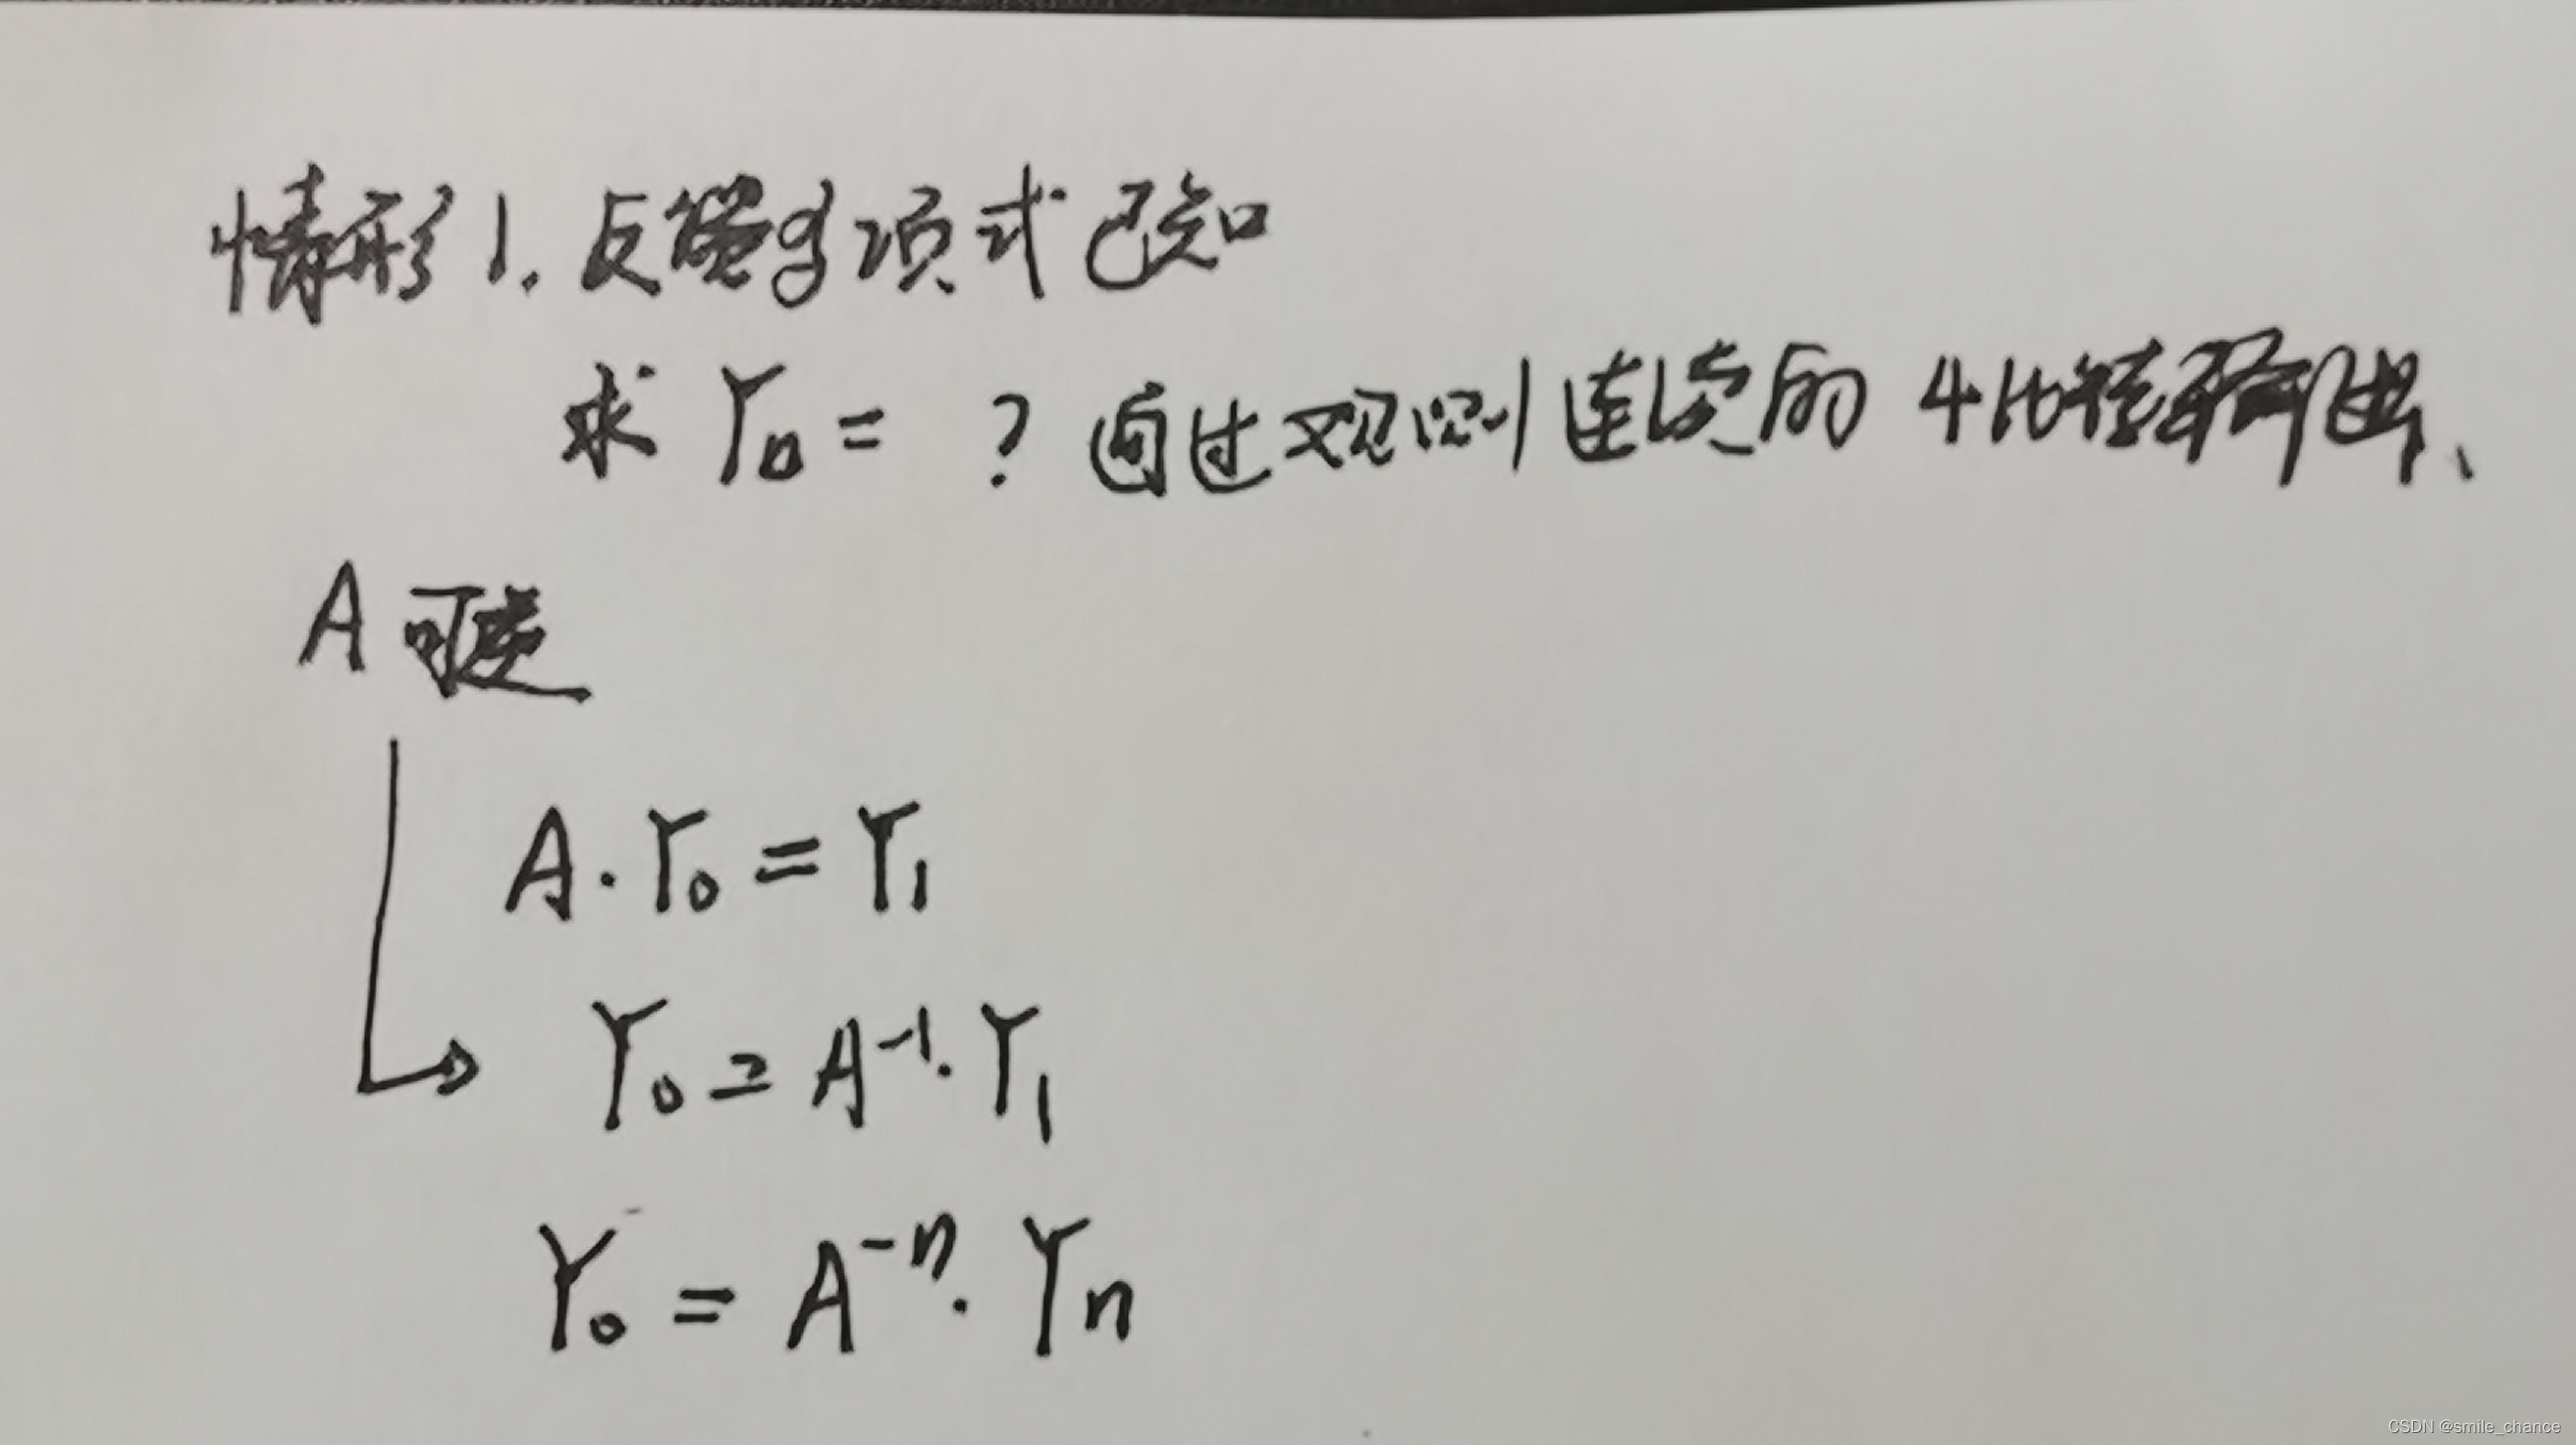 情形1. 反馈多项式已知
求 Y₀ = ? 通过观测连续的 4比特输出、
A 可逆
A · Y₀ = Y₁
Y₀ = A⁻¹ · Y₁
Y₀ = A⁻ⁿ · Yₙ
CSDN @smile_chance